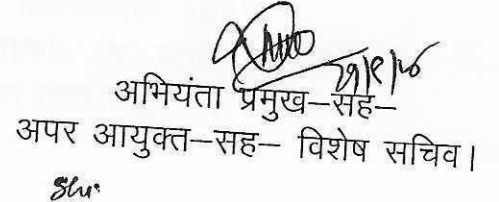 अभियंता प्रमुख–सह–
अपर आयुक्त–सह– विशेष सचिव।